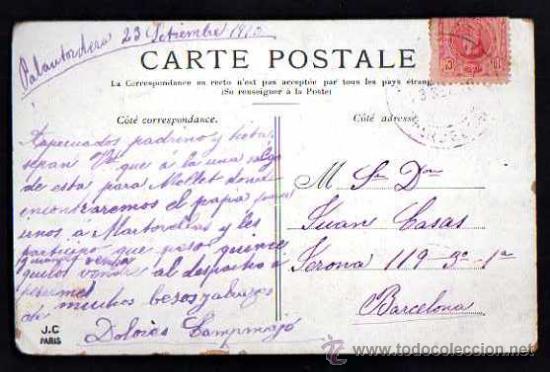 Palautordera 23 Setiembre 191
CARTE POSTALE
La Correspondance au recto n'est pas acceptée par tous les pays étrang
(Se renseigner à la Poste)
Côté correspondance.
Côté adresse.
Apreciados padrinos y
sepan Vds que á la una salgo
de esta para Mollet donde
encontraremos el papá
unos a Martorellas y les
participo que paso quince
al despacho
de muchos besos
Dolores Campmajó
M Sr Don
Juan Casas
Gerona 119 3º-1ª
Barcelona
J.C
PARIS
todocoleccion
www.todocoleccion.net